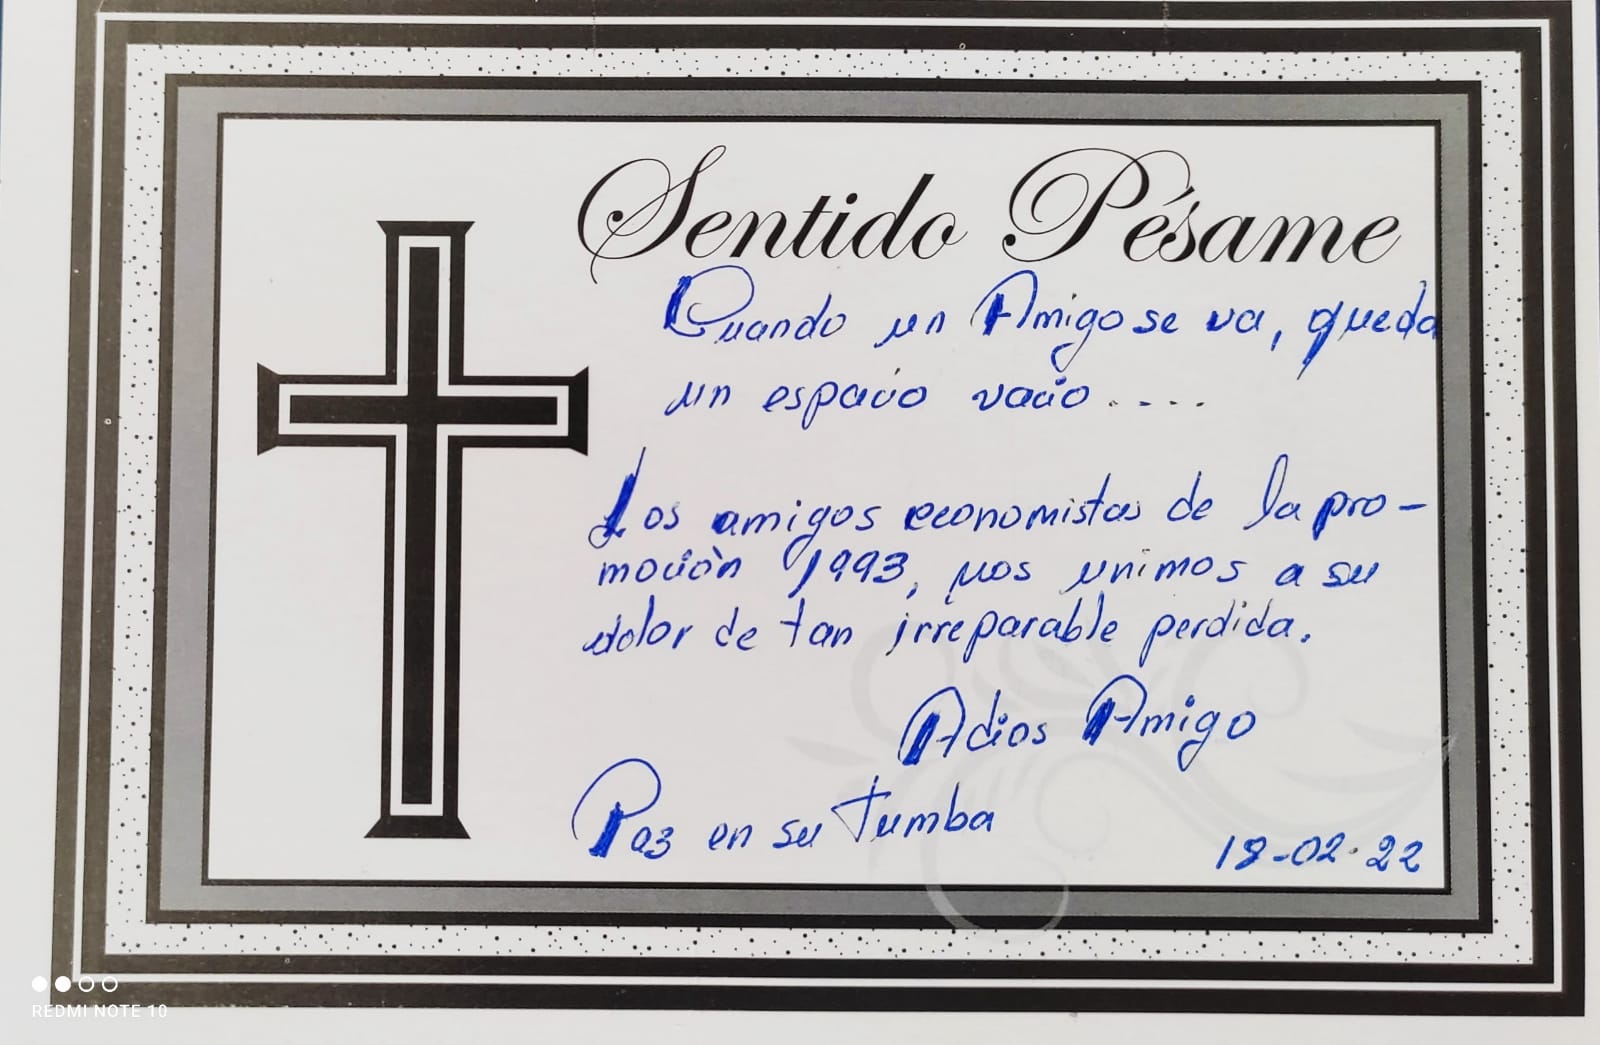 Sentido Pésame
Cuando un Amigo se va, queda
un espacio vacio....
Los amigos economistas de la pro-
moción 1993, nos unimos a su
dolor de tan irreparable perdida.
Adios Amigo
Paz en su Tumba
18-02-22
REDMI NOTE 10